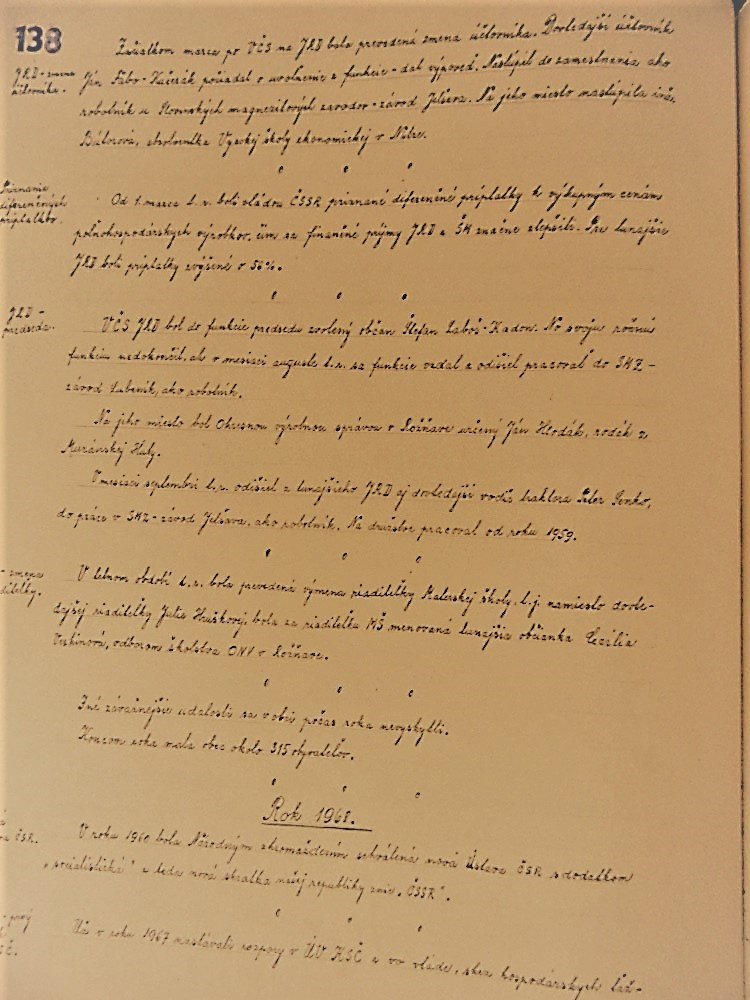 138
JRD - zmena
účtovníka.
Začiatkom marca po VČS na JRD bola prevedená zmena účtovníka. Dovtedajší účtovník
Ján Fabo-Kučerák požiadal o uvoľnenie z funkcie - dal výpoveď. Nastúpil do zamestnania ako
robotník u Slovenských magnezitových závodov - závod Jelšava. Na jeho miesto nastúpila inž.
absolventka Vysokej školy ekonomickej v Nitre.
Priznanie
diferenčných
príplatkov.
Od 1. marca t. r. boli vládou ČSSR priznané diferenčné príplatky k výkupným cenám
poľnohospodárskych výrobkov, čím sa finančné príjmy JRD a ŠM značne zlepšili. Pre tunajšie
JRD boli príplatky zvýšené o 56%.
JRD -
predseda.
VČS JRD bol do funkcie predsedu zvolený občan Štefan Laboš-Kadon. No svoju ročnú
funkciu nedokončil, ale v mesiaci auguste t. r. sa funkcie vzdal a odišiel pracovať do SMZ -
závod Lubeník, ako robotník.
Na jeho miesto bol Okresnou výrobnou správou v Rožňave určený Ján Hlodák, rodák z
Muránskej Huty.
V mesiaci septembri t. r. odišiel z tunajšieho JRD aj dovtedajší vodič traktora Peter Jenko,
do práce v SMZ - závod Jelšava, ako robotník. Na družstve pracoval od roku 1959.
- zmena
diteľky.
V letnom období t. r. bola prevedená výmena riaditeľky Materskej školy, t. j. namiesto dovte-
dajšej riaditeľky Julie Hruškovej, bola za riaditeľku MŠ menovaná tunajšia občianka Cecília
odborom školstva ONV v Rožňave.
Iné závažnejšie udalosti sa v obci počas roka nevyskytli.
Koncom roka mala obec okolo 315 obyvateľov.
Rok 1968.
ČSR.
V roku 1960 bola Národným zhromaždením schválená nová Ústava ČSR s dodatkom
"socialistická" a teda nová skratka našej republiky znie "ČSSR".
- prvý
Už v roku 1967 nastávali rozpory v ÚV KSČ a vo vláde, skrz hospodárskych ťaž-